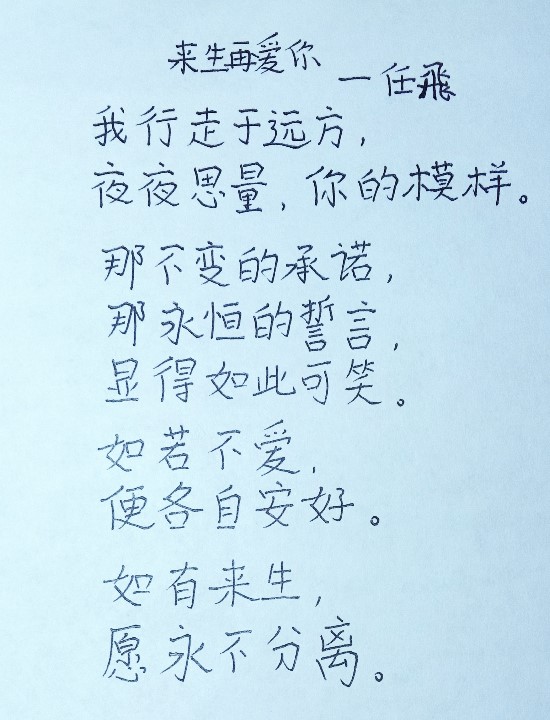 来生再爱你
一任飛
我行走于远方，
夜夜思量，你的模样。
那不变的承诺，
那永恒的誓言，
显得如此可笑。
如若不爱，
便各自安好。
如有来生，
愿永不分离。